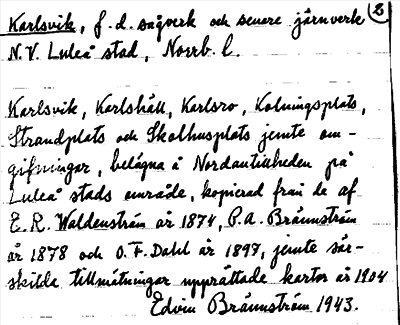 Karlsvik, f.d. sågverk och senare järnverk 2
N.V. Luleå stad, Norrb. l.
Karlsvik, Karlshäll, Karlsro, Kolningsplats,
Strandplats och Skolhusplats jemte om-
gifningar, belägna å Nordantillheden på
Luleå stads område, kopierad från de af
E.R. Waldenström år 1874, P.A. Brännström
år 1878 och O.F. Dahl år 1897, jemte sär-
skilda tillmätningar upprättade kartor år 1904
Edvin Brännström 1943.